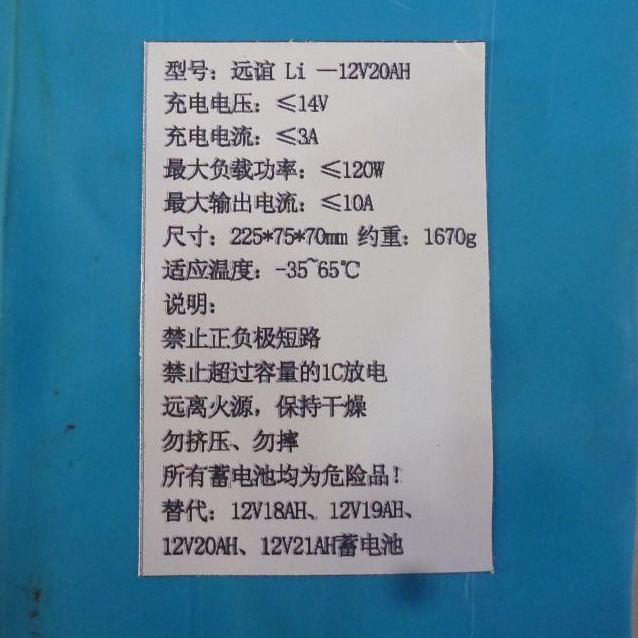 型号：远谊 Li —12V20AH
充电电压：≤14V
充电电流：≤3A
最大负载功率：≤120W
最大输出电流：≤10A
尺寸：225*75*70mm 约重：1670g
适应温度：-35~65℃
说明：
禁止正负极短路
禁止超过容量的1C放电
远离火源，保持干燥
勿挤压、勿摔
所有蓄电池均为危险品！
替代：12V18AH、12V19AH、
12V20AH、12V21AH蓄电池